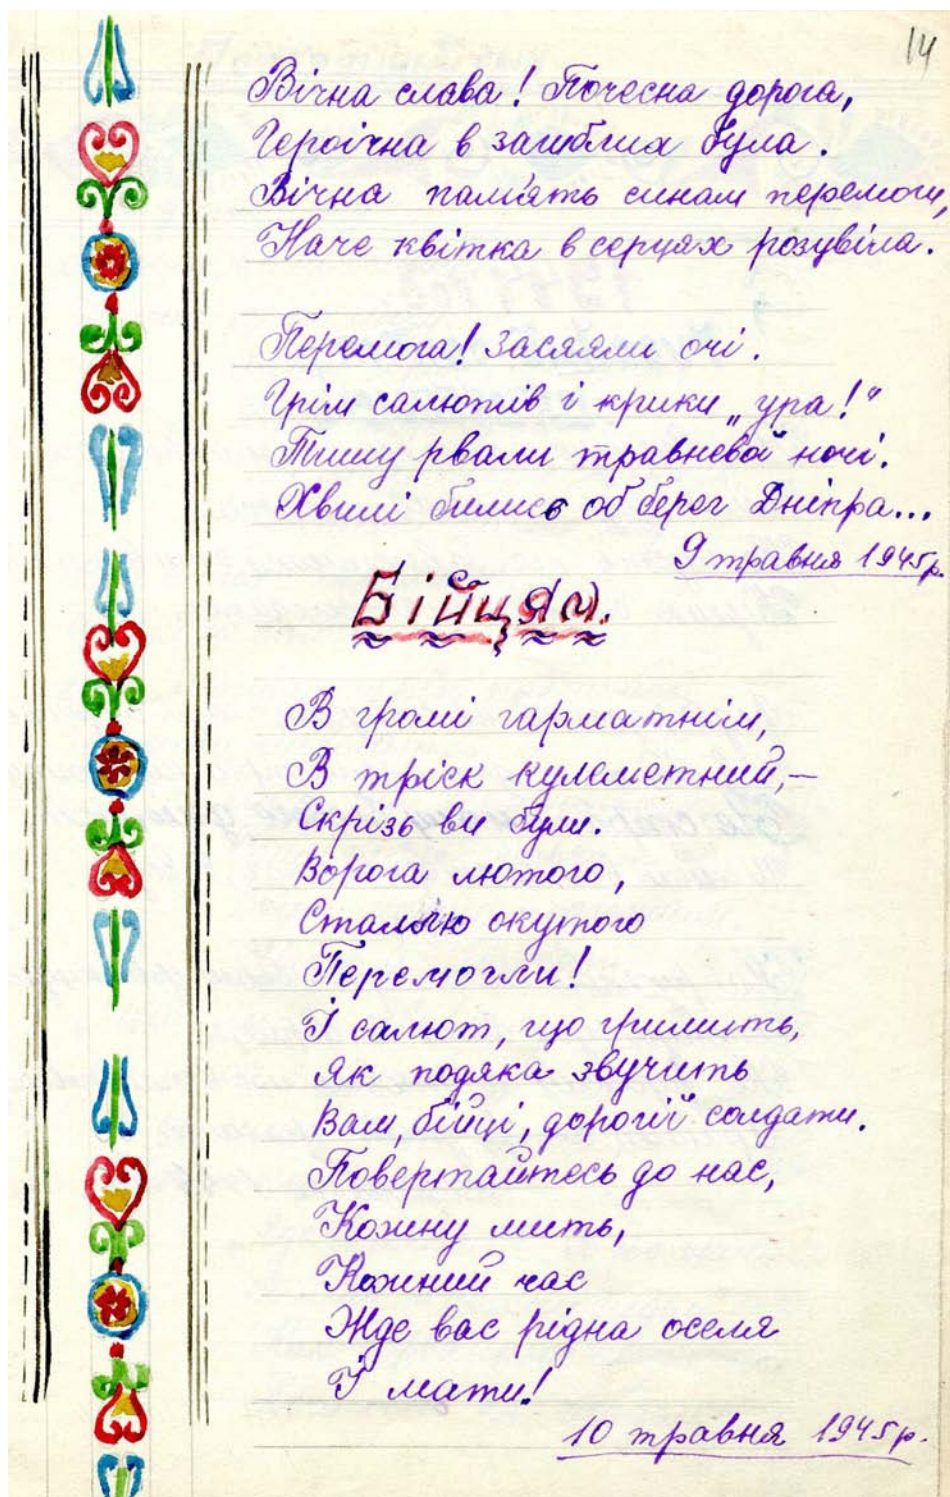 14
Вічна слава! Почесна дорога,
Героїчна в загиблих була.
Вічна пам'ять синам перемоги,
Наче квітка в серцях розцвіла.
Перемога! Засяяли очі.
Грім салютів і крики „ура!“
Тишу рвали травневої ночі.
Хвилі билися об берег Дніпра...
9 травня 1945р.
Бійцям.
В громі гарматнім,
В тріск кулеметний,—
Скрізь ви були.
Ворога лютого,
Сталлю окутого
Перемогли!
І салют, що гримить,
Як подяка звучить
Вам, бійці, дорогії солдати.
Повертайтесь до нас,
Кожну мить,
Кожний час
Жде вас рідна оселя
І мати!
10 травня 1945р.